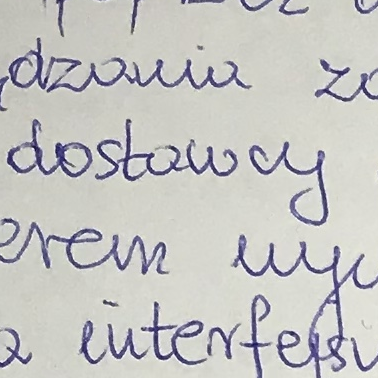 dzania za
dostawcy
erem wy
a interfejs